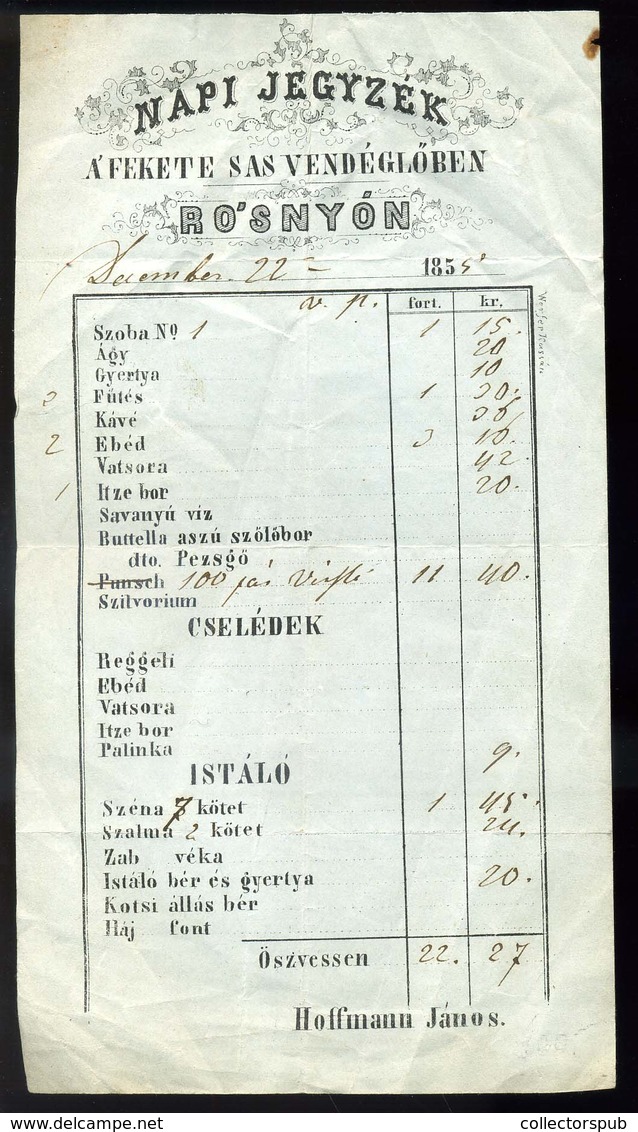 NAPI JEGYZÉK
A' FEKETE SAS VENDÉGLŐBEN
RO'SNYÓN
December 22 1855
v. p. fort. kr.
Szoba No 1 1 15.
Ágy 20
Gyertya 10
2 Fűtés 1 30.
Kávé 36
2 Ebéd 3 10.
Vatsora 42.
1 Itze bor 20.
Savanyú víz
Buttella aszú szőlőbor
dto. Pezsgő
Punsch 100 11 40.
Szilvorium
CSELÉDEK
Reggeli
Ebéd
Vatsora
Itze bor
Palinka 9.
ISTÁLÓ
Széna 7 kötet 1 45.
Szalma 2 kötet 24.
Zab véka
Istáló bér és gyertya 20.
Kotsi állás bér
Háj font
Öszvessen 22. 27
Hoffmann János.
collectorspub
www.delcampe.net